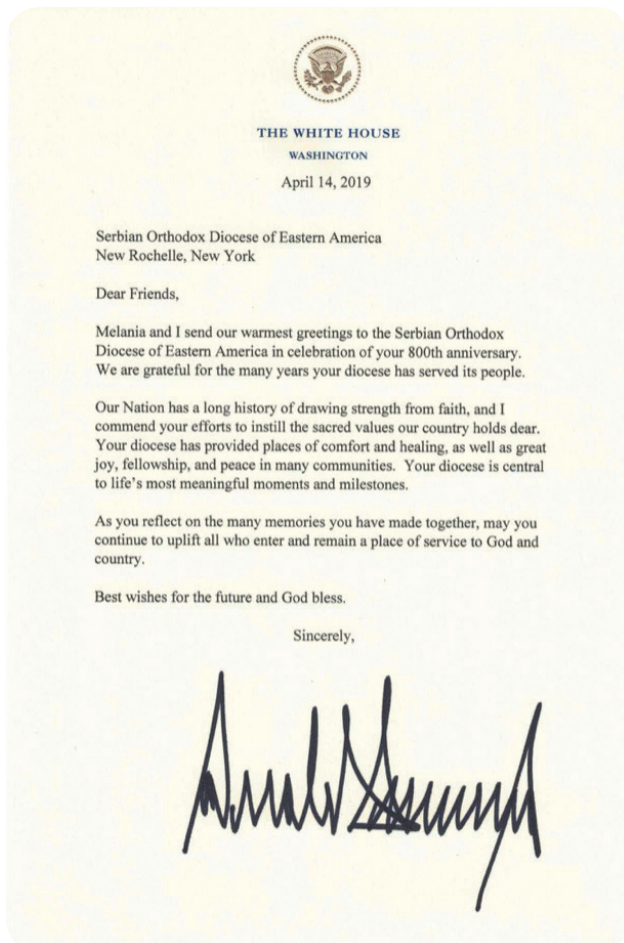 THE WHITE HOUSE
WASHINGTON
April 14, 2019
Serbian Orthodox Diocese of Eastern America
New Rochelle, New York
Dear Friends,
Melania and I send our warmest greetings to the Serbian Orthodox
Diocese of Eastern America in celebration of your 800th anniversary.
We are grateful for the many years your diocese has served its people.
Our Nation has a long history of drawing strength from faith, and I
commend your efforts to instill the sacred values our country holds dear.
Your diocese has provided places of comfort and healing, as well as great
joy, fellowship, and peace in many communities.  Your diocese is central
to life's most meaningful moments and milestones.
As you reflect on the many memories you have made together, may you
continue to uplift all who enter and remain a place of service to God and
country.
Best wishes for the future and God bless.
Sincerely,